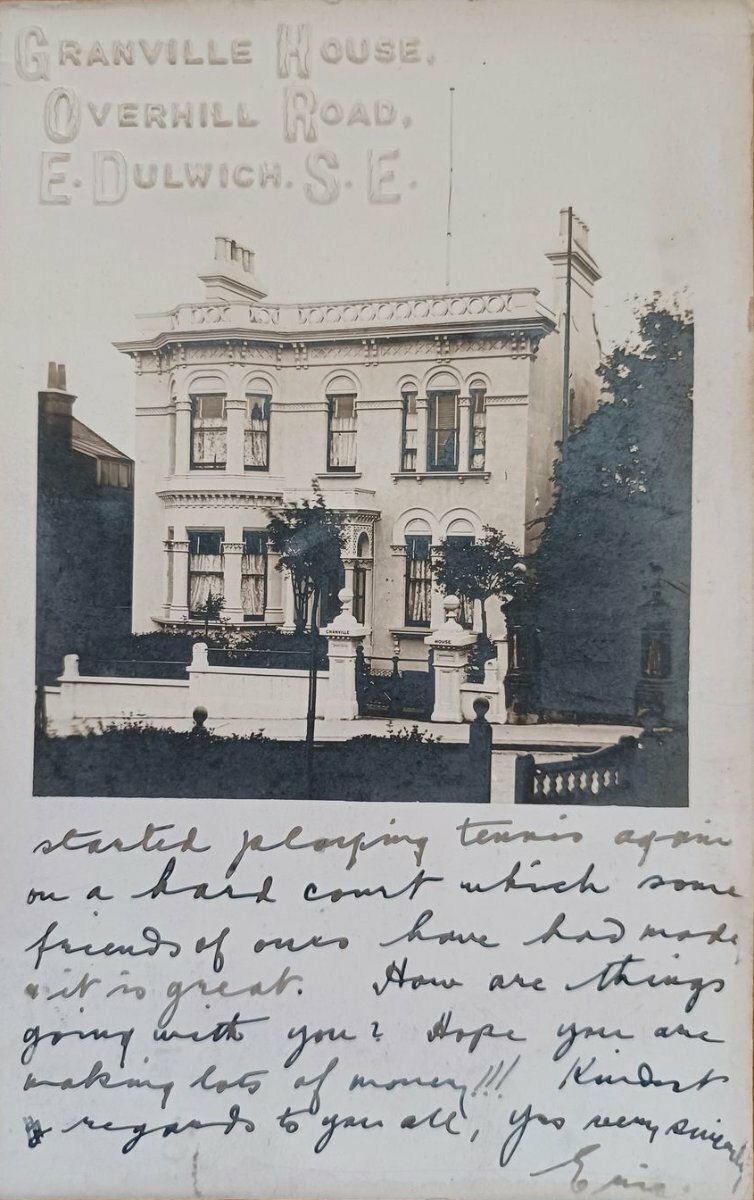 GRANVILLE HOUSE,
OVERHILL ROAD,
E. DULWICH. S. E.
GRANVILLE
HOUSE
started playing tennis again
on a hard court which some
friends of ours have had made
it is great. How are things
going with you? Hope you are
making lots of money!!! Kindest
regards to you all, Yrs very sincerely